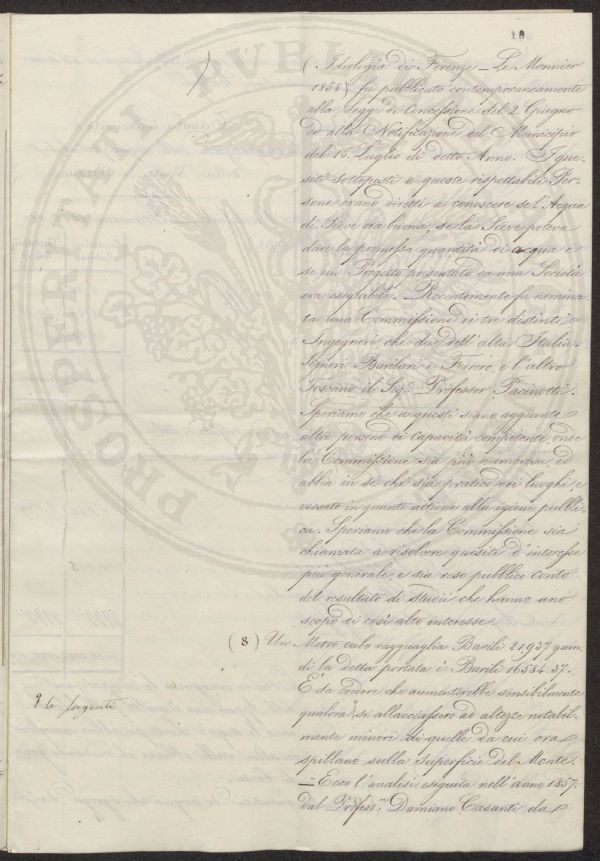 19
(Idrologia di Firenze – Le Monnier
1858) fu pubblicato contemporaneamente
alla Legge di Concessione del 2. Giugno
ed alla Notificazione del Municipio
del 15. Luglio di detto Anno. I que
siti sottoposti a queste rispettabili Per-
sone erano diretti a conoscere se l'Acqua
di Sieve era buona, se la Sieve poteva
dare la promessa quantità di acqua e
se un Progetto presentato da una Società
era eseguibile. – Recentemente fu nomina
ta una Commissione di tre distinti
Ingegneri che due dell'alta Italia
Signori Barilari e Ferrero e l'altro
Toscano il Sig.r Professor Pacinotti.
Speriamo che a questi siano aggiunte
altre persone di capacità competente, onde
la Commissione sia più numerosa, ed
abbia in se chi sia pratico dei luoghi e
versato in quanto attiene alla igiene pubbli-
ca. Speriamo che la Commissione sia
chiamata a risolvere quesiti d'interesse
più generale, e sia reso pubblico conto
del resultato di studii che hanno uno
scopo di così alto interesse
(8) Un Metro cubo ragguaglia Barili 21.937 quin
di la detta portata è Barili 16584.37.
È da credere che aumenterebbe sensibilmente
le sorgenti
qualora si allacciassero ad altezze notabil-
mente minori di quelle da cui ora
spillano sulla superficie del Monte.
– Ecco l'analisi eseguita nell'anno 1857.
dal Profess.re Damiano Casanti da
PROSPERITATI PVBL